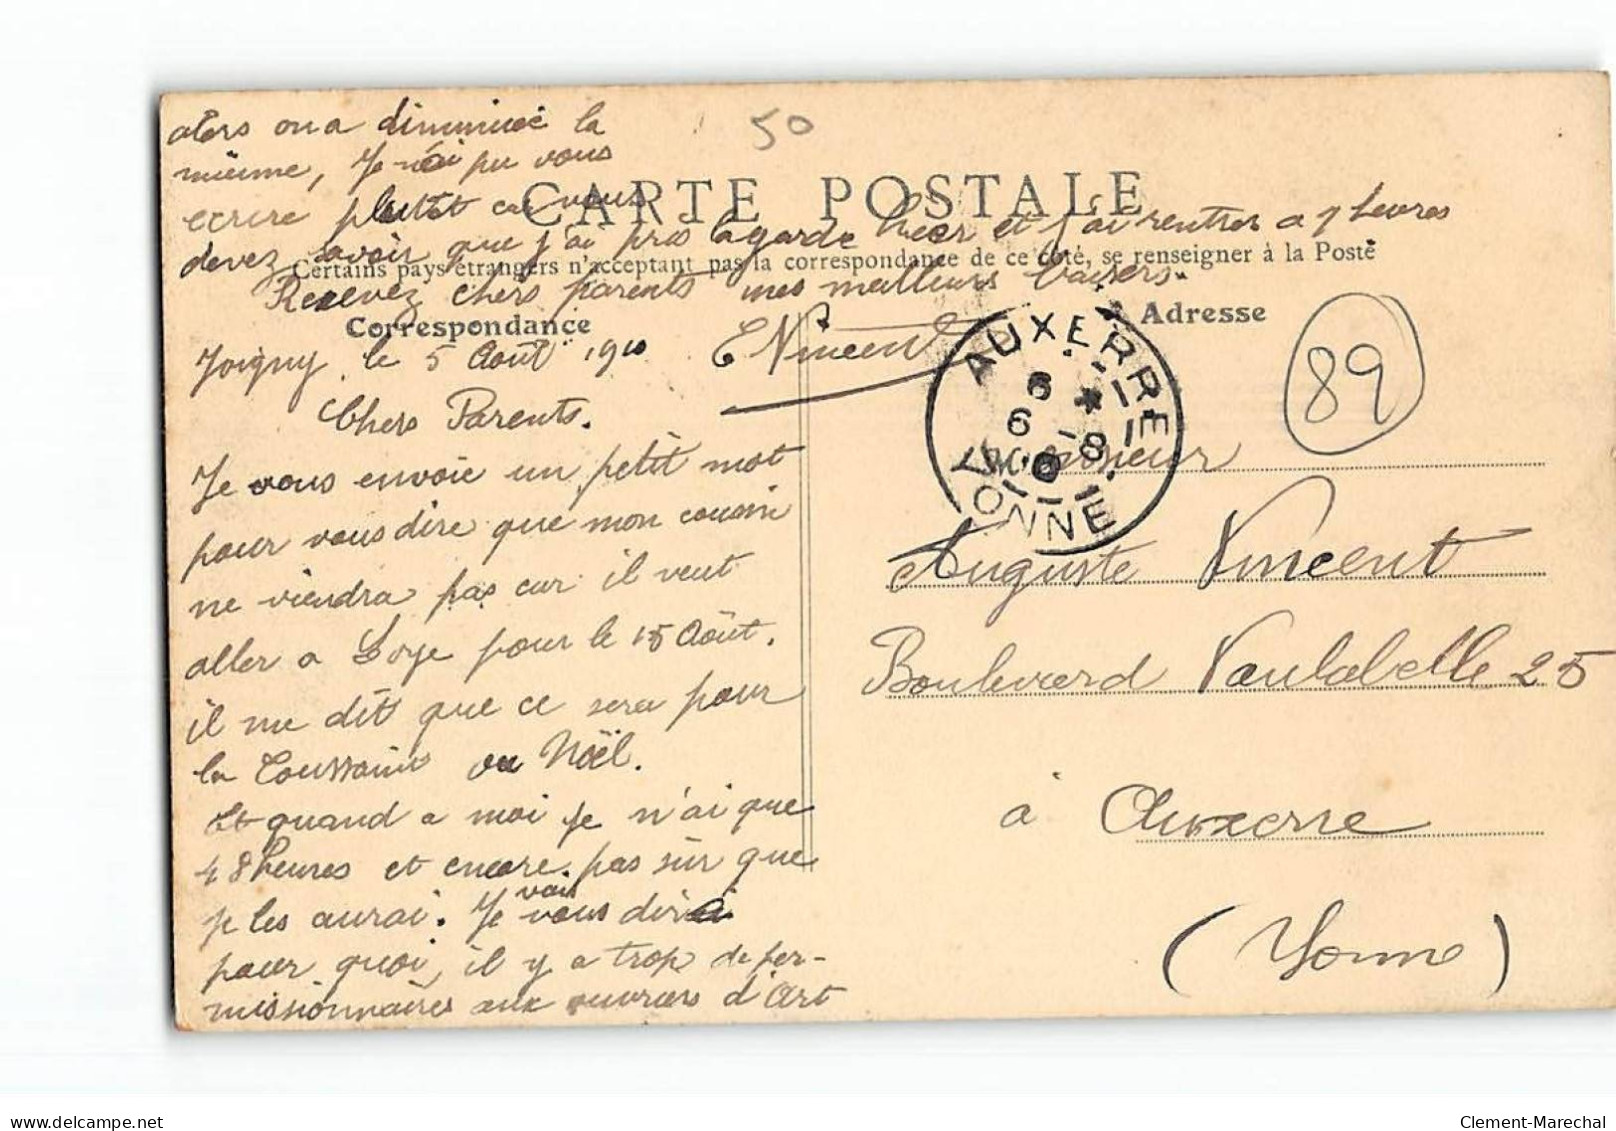 50
CARTE POSTALE
Certains pays étrangers n'acceptant pas la correspondance de ce côté, se renseigner à la Poste
Correspondance
Adresse
89
Joigny, le 5 Août 1910
Chers Parents.
Je vous envoie un petit mot
pour vous dire que mon cousin
ne viendra pas car il veut
aller a Loye pour le 15 Août.
il me dit que ce sera pour
la Toussaint ou Noël.
et quand a moi je n'ai que
48 heures et encore pas sûr que
je les aurai. Je vais vous dire
pour quoi, il y a trop de per-
missionnaires aux ouvriers d'Art
alors on a diminué la
mienne, Je n'ai pu vous
ecrire plutôt car vous
devez savoir que j'ai pris la garde hier et j'ai rentrer a 7 heures
Recevez chers parents mes meilleurs baisers.
E Vincent
AUXERRE
6 * 11
6 - 8
10
YONNE
Monsieur
Auguste Vincent
Boulevard Vaulabelle 25
à Auxerre
(Yonne)
delcampe.net
Clement-Marechal